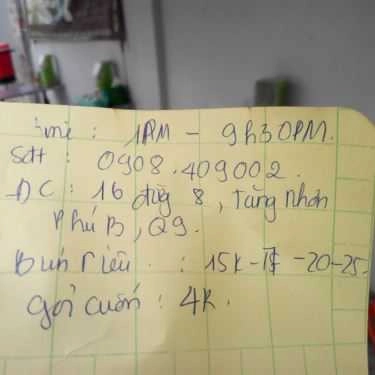 Time : 1PM - 9h30PM.
Sđt : 0908.409002.
ĐC : 16 đườg 8, Tăng Nhơn
Phú B, Q9.
Bún riêu : 15k - - 20 - 25.
gỏi cuốn : 4k.